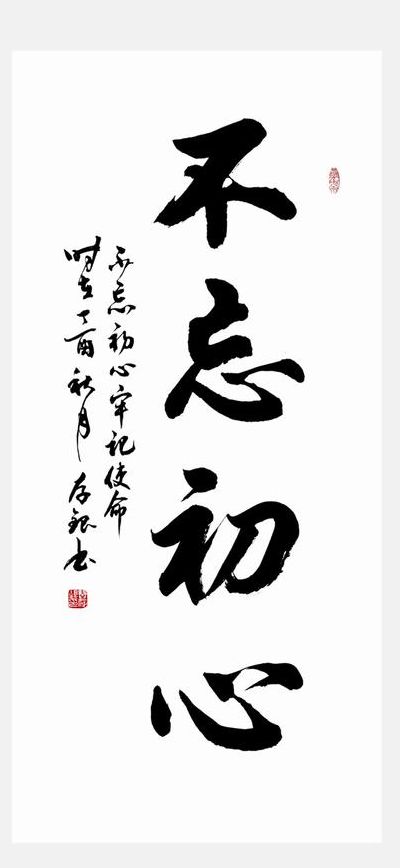 不忘初心
不忘初心牢记使命
时在丁酉秋月存银书